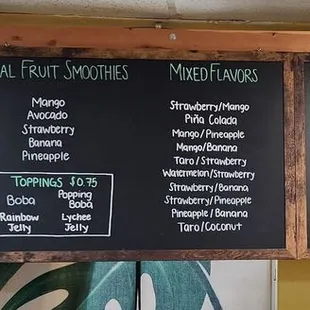 AL FRUIT SMOOTHIES
Mango
Avocado
Strawberry
Banana
Pineapple
TOPPINGS $0.75
Boba
Popping
Boba
Rainbow
Jelly
Lychee
Jelly
MIXED FLAVORS
Strawberry/Mango
Piña Colada
Mango/Pineapple
Mango/Banana
Taro/Strawberry
Watermelon/Strawberry
Strawberry/Banana
Strawberry/Pineapple
Pineapple/Banana
Taro/Coconut